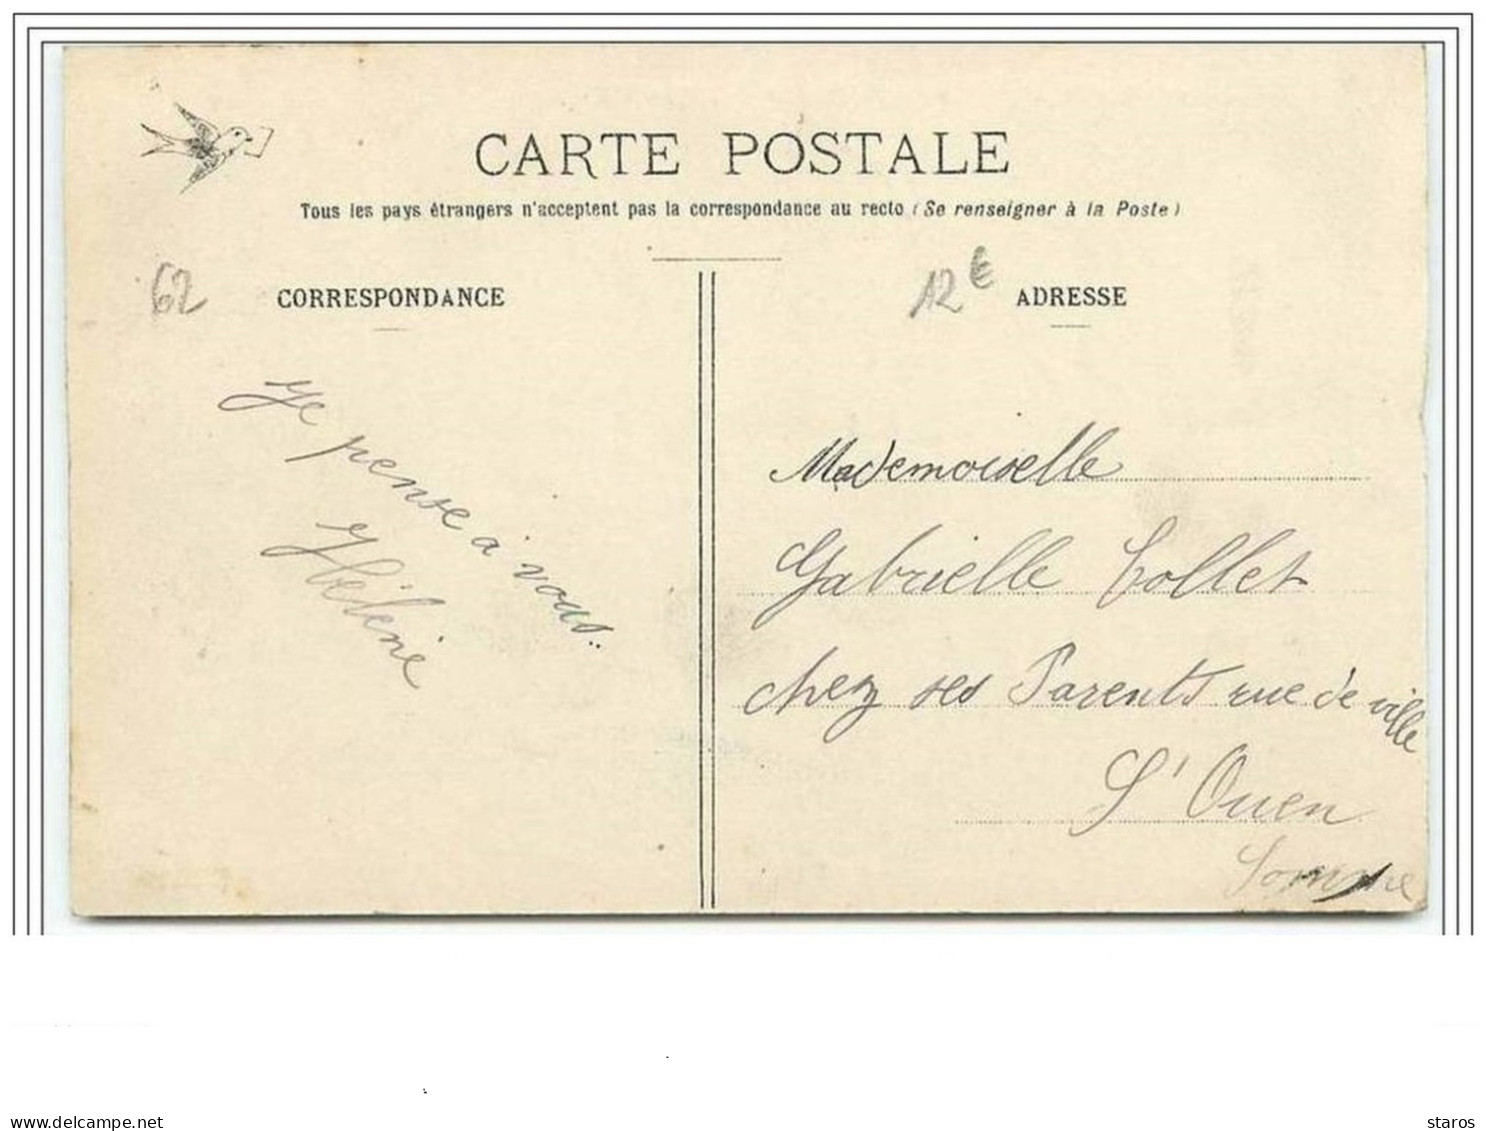 CARTE POSTALE
Tous les pays étrangers n'acceptent pas la correspondance au recto (Se renseigner à la Poste)
62
CORRESPONDANCE
12 €
ADRESSE
Je pense à vous..
Hélène
Mademoiselle
Gabrielle Collet
chez ses Parents rue de ville
St Ouen
Somme
delcampe.net
staros